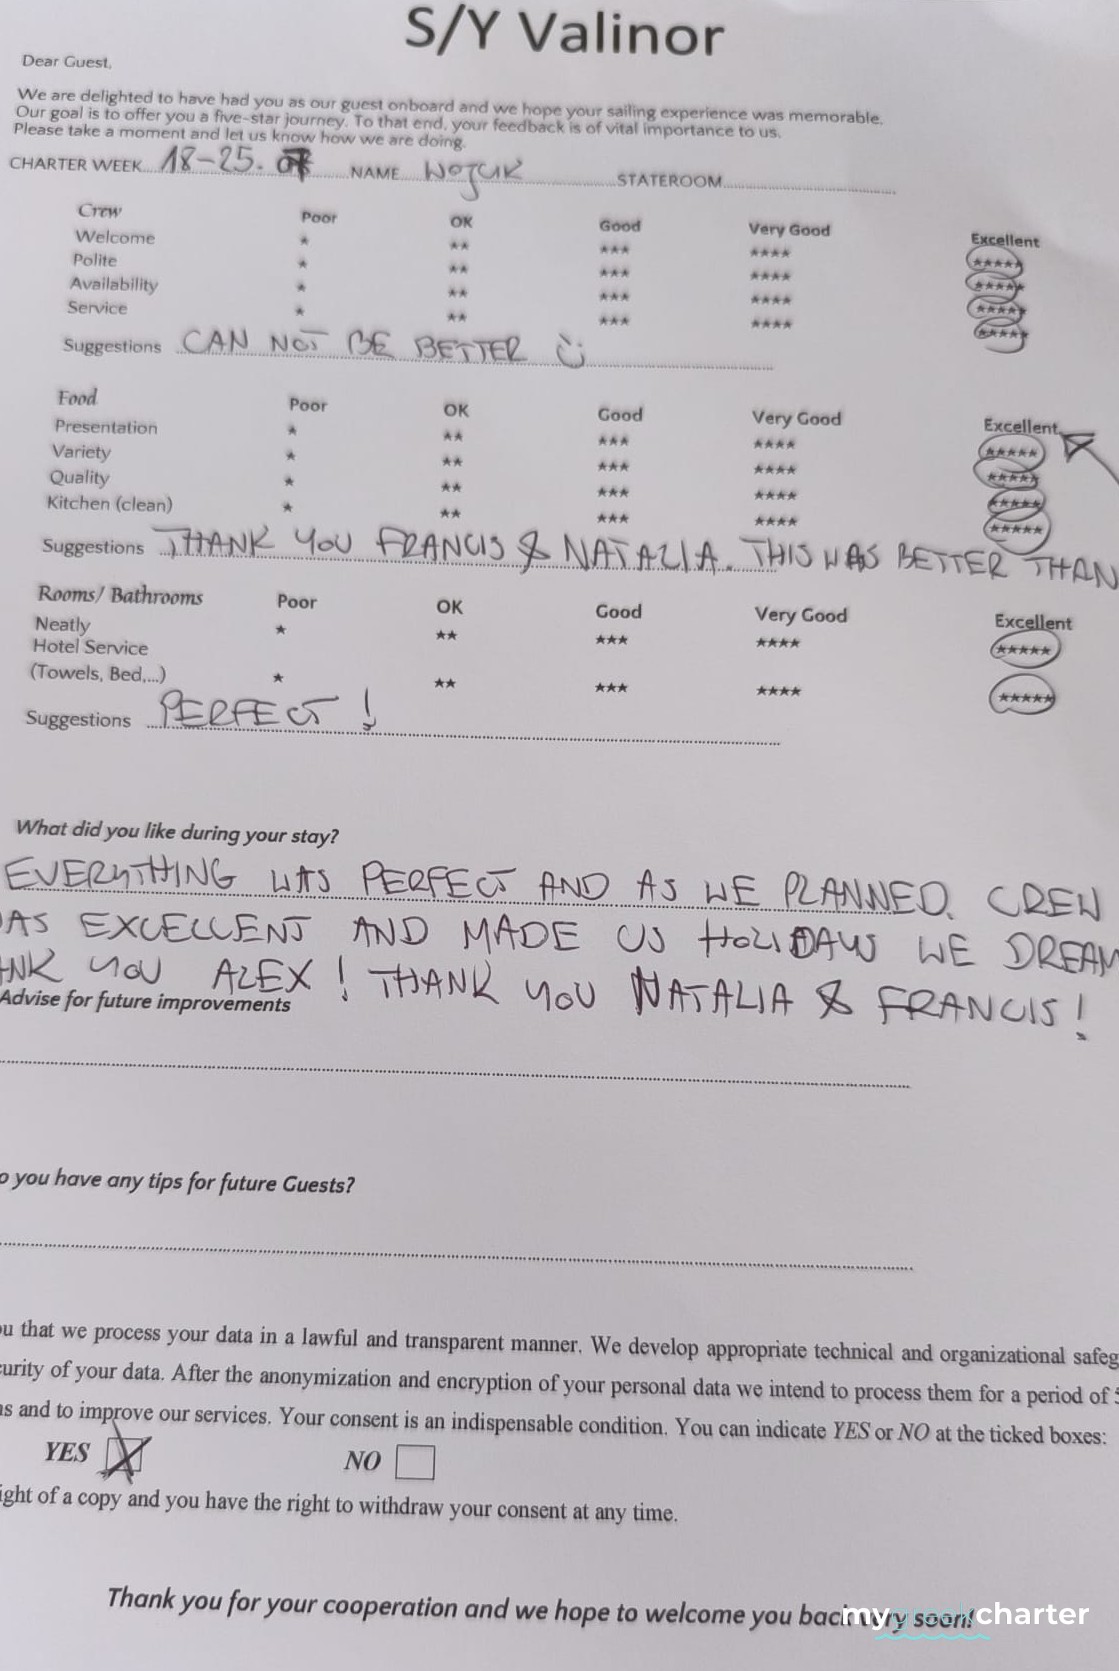 S/Y Valinor
Dear Guest,
We are delighted to have had you as our guest onboard and we hope your sailing experience was memorable.
Our goal is to offer you a five-star journey. To that end, your feedback is of vital importance to us.
Please take a moment and let us know how we are doing.
CHARTER WEEK 18-25. 07 NAME STATEROOM
Crew Poor OK Good Very Good Excellent
Welcome * ** *** **** *****
Polite * ** *** **** *****
Availability * ** *** **** *****
Service * ** *** **** *****
Suggestions CAN NOT BE BETTER
Food Poor OK Good Very Good Excellent
Presentation * ** *** **** *****
Variety * ** *** **** *****
Quality * ** *** **** *****
Kitchen (clean) * ** *** **** *****
Suggestions THANK YOU FRANCIS & NATALIA. THIS WAS BETTER THAN
Rooms/ Bathrooms Poor OK Good Very Good Excellent
Neatly * ** *** **** *****
Hotel Service
(Towels, Bed,...) * ** *** **** *****
Suggestions PERFECT !
What did you like during your stay?
EVERYTHING WAS PERFECT AND AS WE PLANNED. CREW
AS EXCELLENT AND MADE US HOLIDAYS WE DREAM
ANK YOU ALEX! THANK YOU NATALIA & FRANCIS!
Advise for future improvements
o you have any tips for future Guests?
ou that we process your data in a lawful and transparent manner. We develop appropriate technical and organizational safeg
curity of your data. After the anonymization and encryption of your personal data we intend to process them for a period of 5
ns and to improve our services. Your consent is an indispensable condition. You can indicate YES or NO at the ticked boxes:
YES X NO
ight of a copy and you have the right to withdraw your consent at any time.
Thank you for your cooperation and we hope to welcome you back very soon!
mygreekcharter